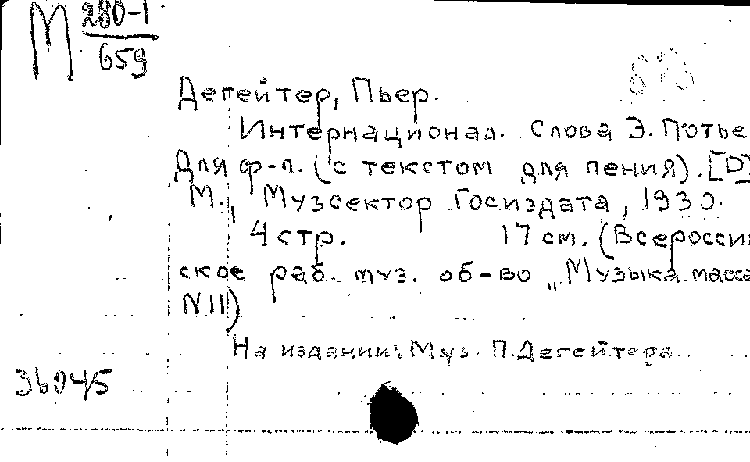 М 280-1
659
Дегейтер, Пьер.
Интернационал. Слова Э. Потье
Для ф-п. (с текстом для пения). [D]
М., Музсектор Госиздата, 1930.
4 стр. 17 см. (Всероссий
ское раб. муз. об-во „Музыка масса
N 11)
На издании: Муз. П. Дегейтера
36045